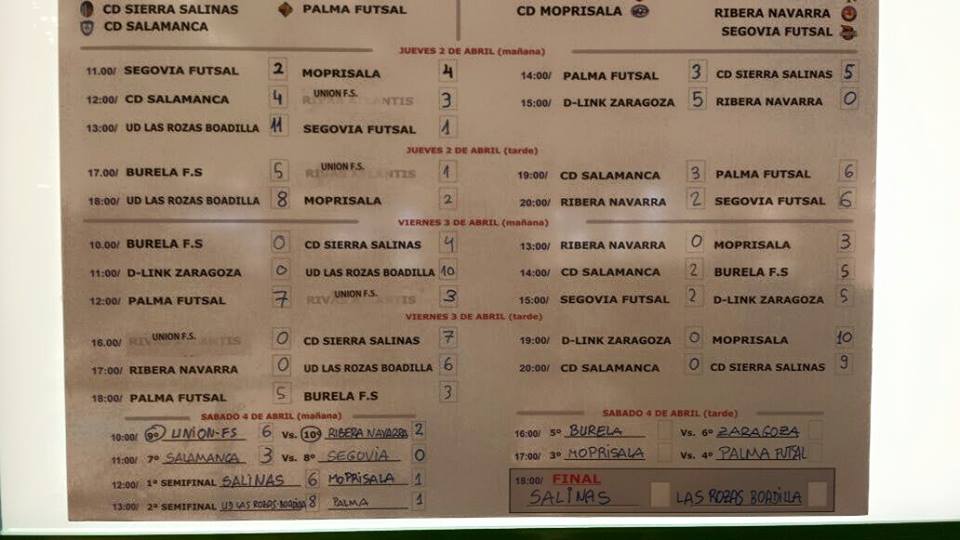 CD SIERRA SALINAS PALMA FUTSAL
CD SALAMANCA
CD MOPRISALA RIBERA NAVARRA
SEGOVIA FUTSAL
JUEVES 2 DE ABRIL (mañana)
11.00/ SEGOVIA FUTSAL 2 MOPRISALA 4
12:00/ CD SALAMANCA 4 UNION F.S. 3
13:00/ UD LAS ROZAS BOADILLA 11 SEGOVIA FUTSAL 1
14:00/ PALMA FUTSAL 3 CD SIERRA SALINAS 5
15:00/ D-LINK ZARAGOZA 5 RIBERA NAVARRA 0
JUEVES 2 DE ABRIL (tarde)
17.00/ BURELA F.S 5 UNION F.S. 1
18:00/ UD LAS ROZAS BOADILLA 8 MOPRISALA 2
19:00/ CD SALAMANCA 3 PALMA FUTSAL 6
20:00/ RIBERA NAVARRA 2 SEGOVIA FUTSAL 6
VIERNES 3 DE ABRIL (mañana)
10.00/ BURELA F.S 0 CD SIERRA SALINAS 4
11:00/ D-LINK ZARAGOZA 0 UD LAS ROZAS BOADILLA 10
12:00/ PALMA FUTSAL 7 UNION F.S. 3
13:00/ RIBERA NAVARRA 0 MOPRISALA 3
14:00/ CD SALAMANCA 2 BURELA F.S 5
15:00/ SEGOVIA FUTSAL 2 D-LINK ZARAGOZA 5
VIERNES 3 DE ABRIL (tarde)
16.00/ UNION F.S. 0 CD SIERRA SALINAS 7
17:00/ RIBERA NAVARRA 0 UD LAS ROZAS BOADILLA 6
18:00/ PALMA FUTSAL 5 BURELA F.S 3
19:00/ D-LINK ZARAGOZA 0 MOPRISALA 10
20:00/ CD SALAMANCA 0 CD SIERRA SALINAS 9
SABADO 4 DE ABRIL (mañana)
10:00/ 9º UNION-FS 6 Vs. 10º RIBERA NAVARRA 2
11:00/ 7º SALAMANCA 3 Vs. 8º SEGOVIA 0
12:00/ 1ª SEMIFINAL SALINAS 6 MOPRISALA 1
13:00/ 2ª SEMIFINAL UD LAS ROZAS-BOADILLA 8 PALMA 1
SABADO 4 DE ABRIL (tarde)
16:00/ 5º BURELA Vs. 6º ZARAGOZA
17:00/ 3º MOPRISALA Vs. 4º PALMA FUTSAL
18:00/ FINAL
SALINAS LAS ROZAS BOADILLA